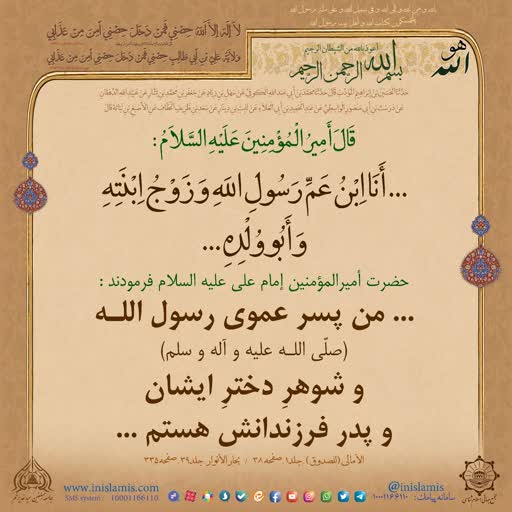 لا إله إلا الله حصني فمن دخل حصني أمن من عذابي
ولاية علي بن أبي طالب حصني فمن دخل حصني أمن من عذابي
هو
الله
أعوذ بالله من الشيطان الرجيم
بسم الله الرحمن الرحيم
قَالَ أَمِيرُ الْمُؤْمِنِينَ عَلَيْهِ السَّلَامُ :
... أَنَا ابْنُ عَمِّ رَسُولِ اللهِ وَ زَوْجُ ابْنَتِهِ
وَ أَبُو وُلْدِهِ ...
حضرت أمیرالمؤمنین إمام علی علیه السلام فرمودند :
... من پسر عموی رسول اللـه
(صلّی اللـه علیه و آله و سلم)
و شوهرِ دخترِ ایشان
و پدر فرزندانش هستم ...
الأمالی(للصدوق) جلد۱ صفحه ۳۸ / بحارالأنوار جلد۳۹ صفحه ۳۳۵
www.inislamis.com
SMS system : 10001166110
@inislamis
سامانه پیامک : ۱۰۰۰۱۱۶۶۱۱۰